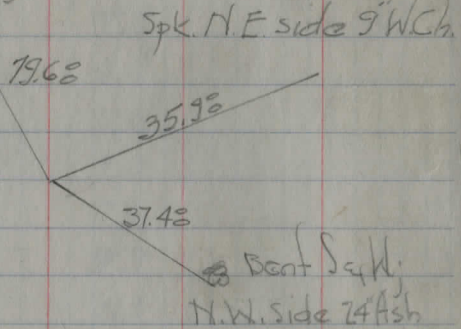 Spk. N.E. side 9" W.Ch.
79.6
35.9
37.4
Bent
N.W. side 24" Ash